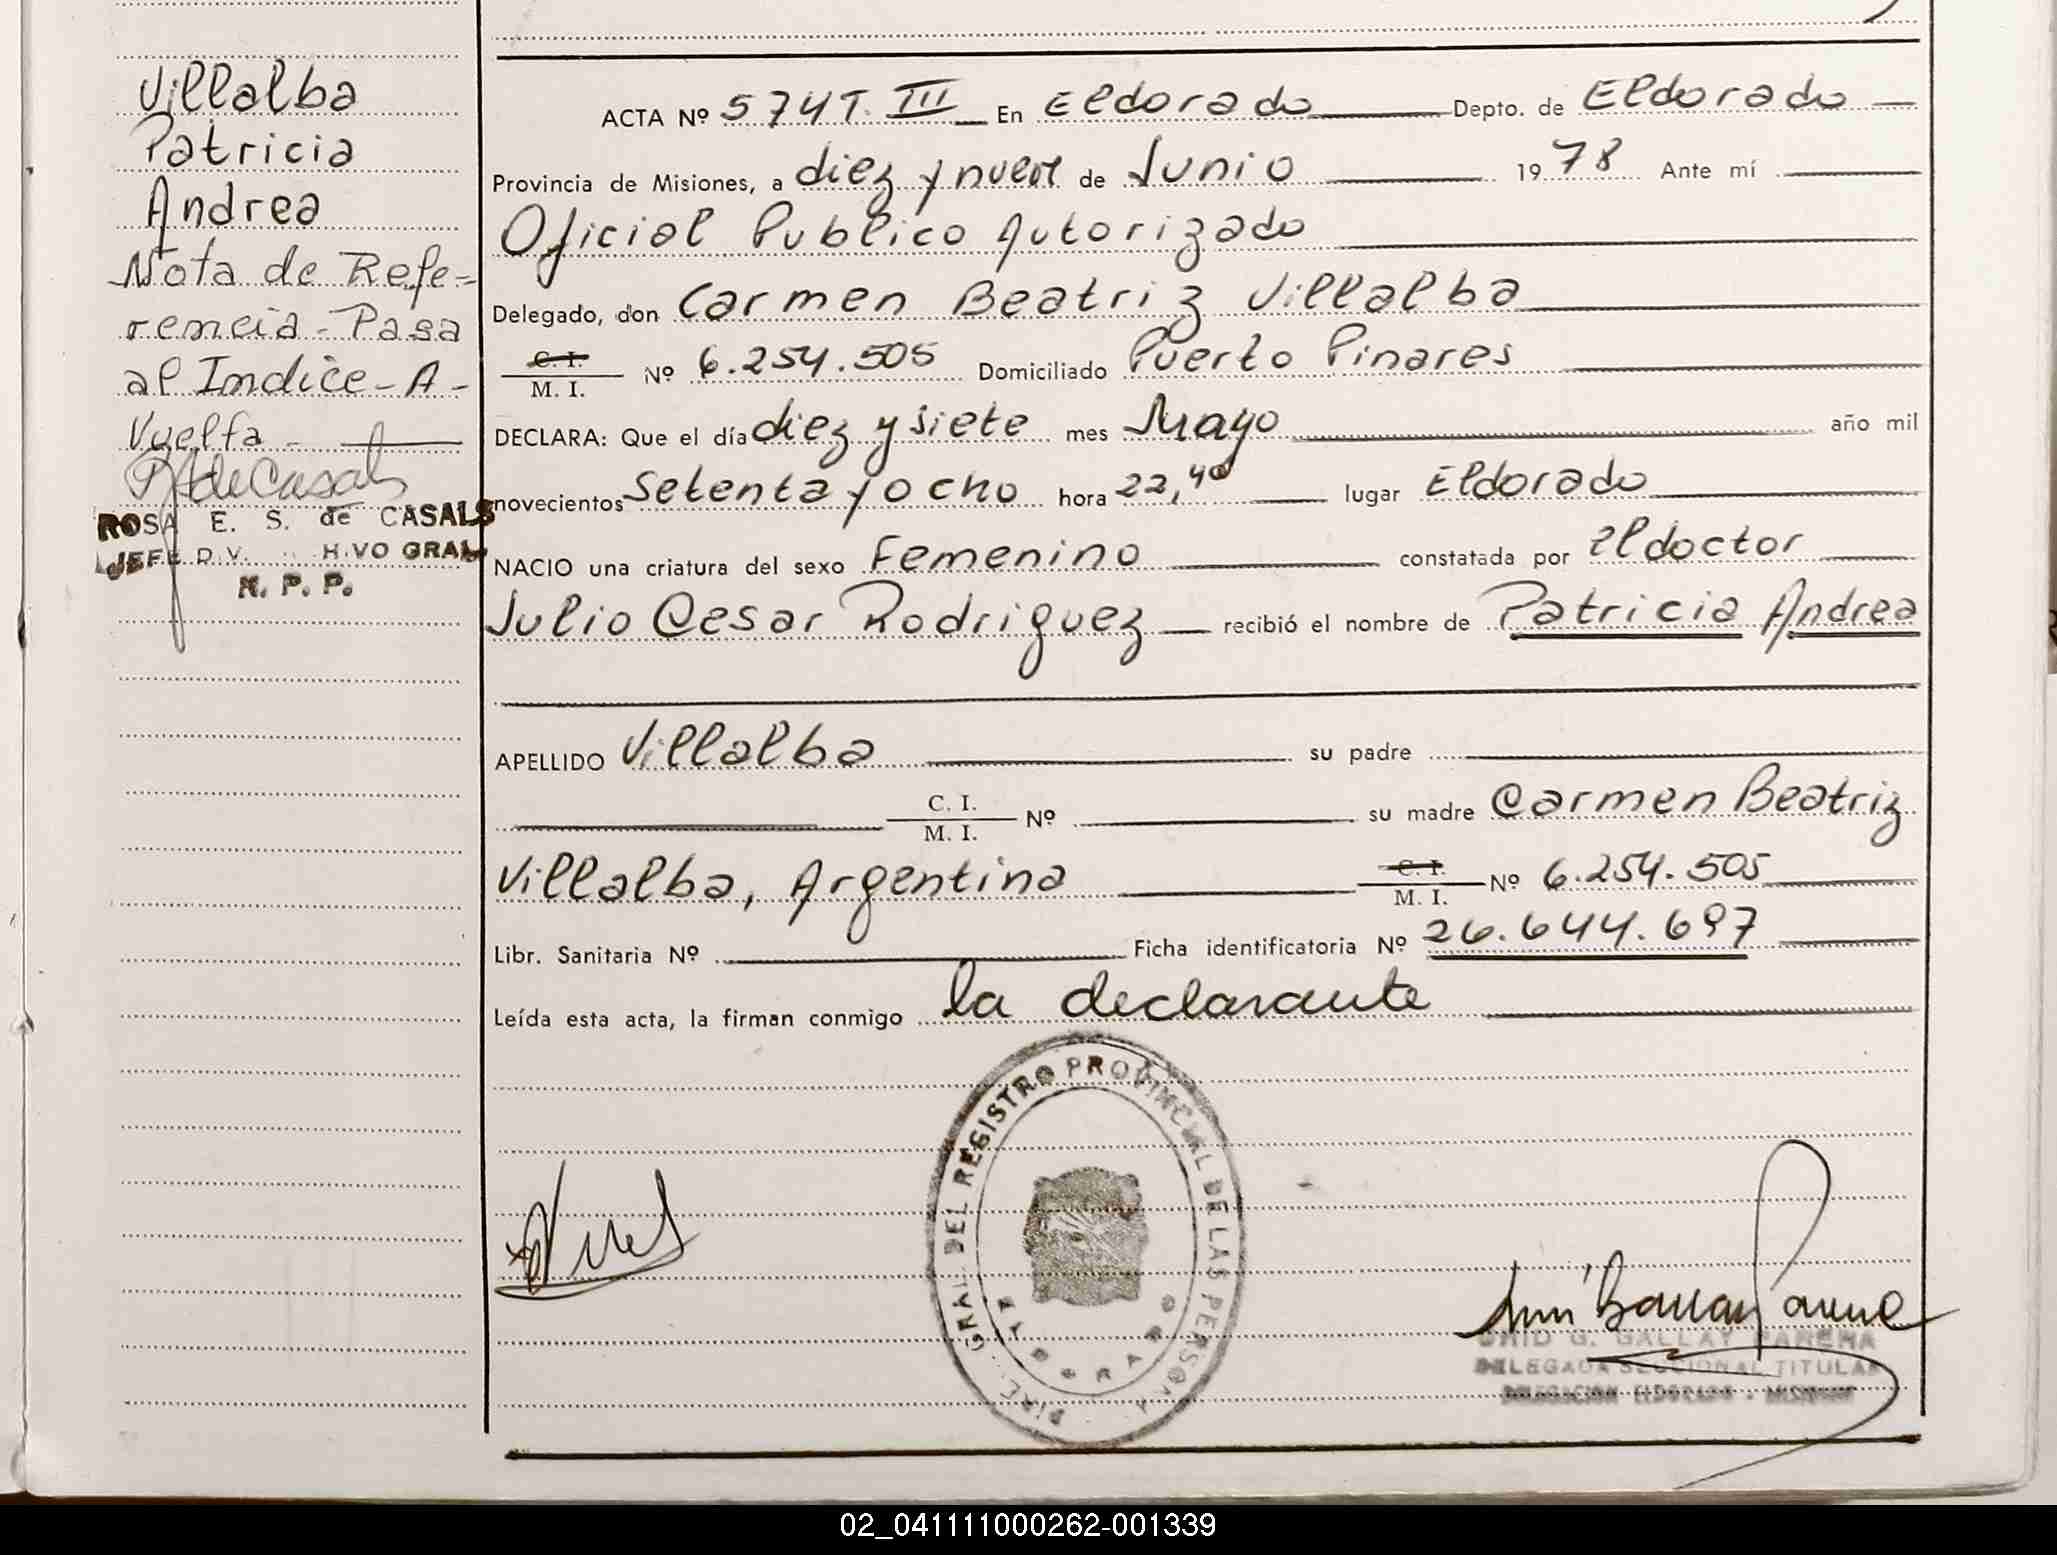 Villalba
Patricia
Andrea
Nota de Refe-
rencia - Pasa
al Indice - A -
Vuelta -
ROSA E. S. de CASALS
JEFE DIV. H.VO GRAL
R. P. P.
ACTA Nº 574 T. III En Eldorado Depto. de Eldorado
Provincia de Misiones, a diez y nueve de Junio 1978 Ante mí
Oficial Publico Autorizado
Delegado, don Carmen Beatriz Villalba
C. I.
M. I. Nº 6.254.505 Domiciliado Puerto Pinares
DECLARA: Que el día diez y siete mes Mayo año mil
novecientos Setenta y ocho hora 22,40 lugar Eldorado
NACIO una criatura del sexo Femenino constatada por el doctor
Julio Cesar Rodriguez recibió el nombre de Patricia Andrea
APELLIDO Villalba su padre
C. I.
M. I. Nº su madre Carmen Beatriz
Villalba, Argentina C. I.
M. I. Nº 6.254.505
Libr. Sanitaria Nº Ficha identificatoria Nº 26.644.697
Leída esta acta, la firman conmigo la declarante
GRAL DEL REGISTRO PROVINCIAL DE LAS PERSONA
ELDORADO
G. GALLAY PAREHA
DELEGADA SECCIONAL TITULAR
DELEGACION ELDORADO - MISIONES
02_041111000262-001339